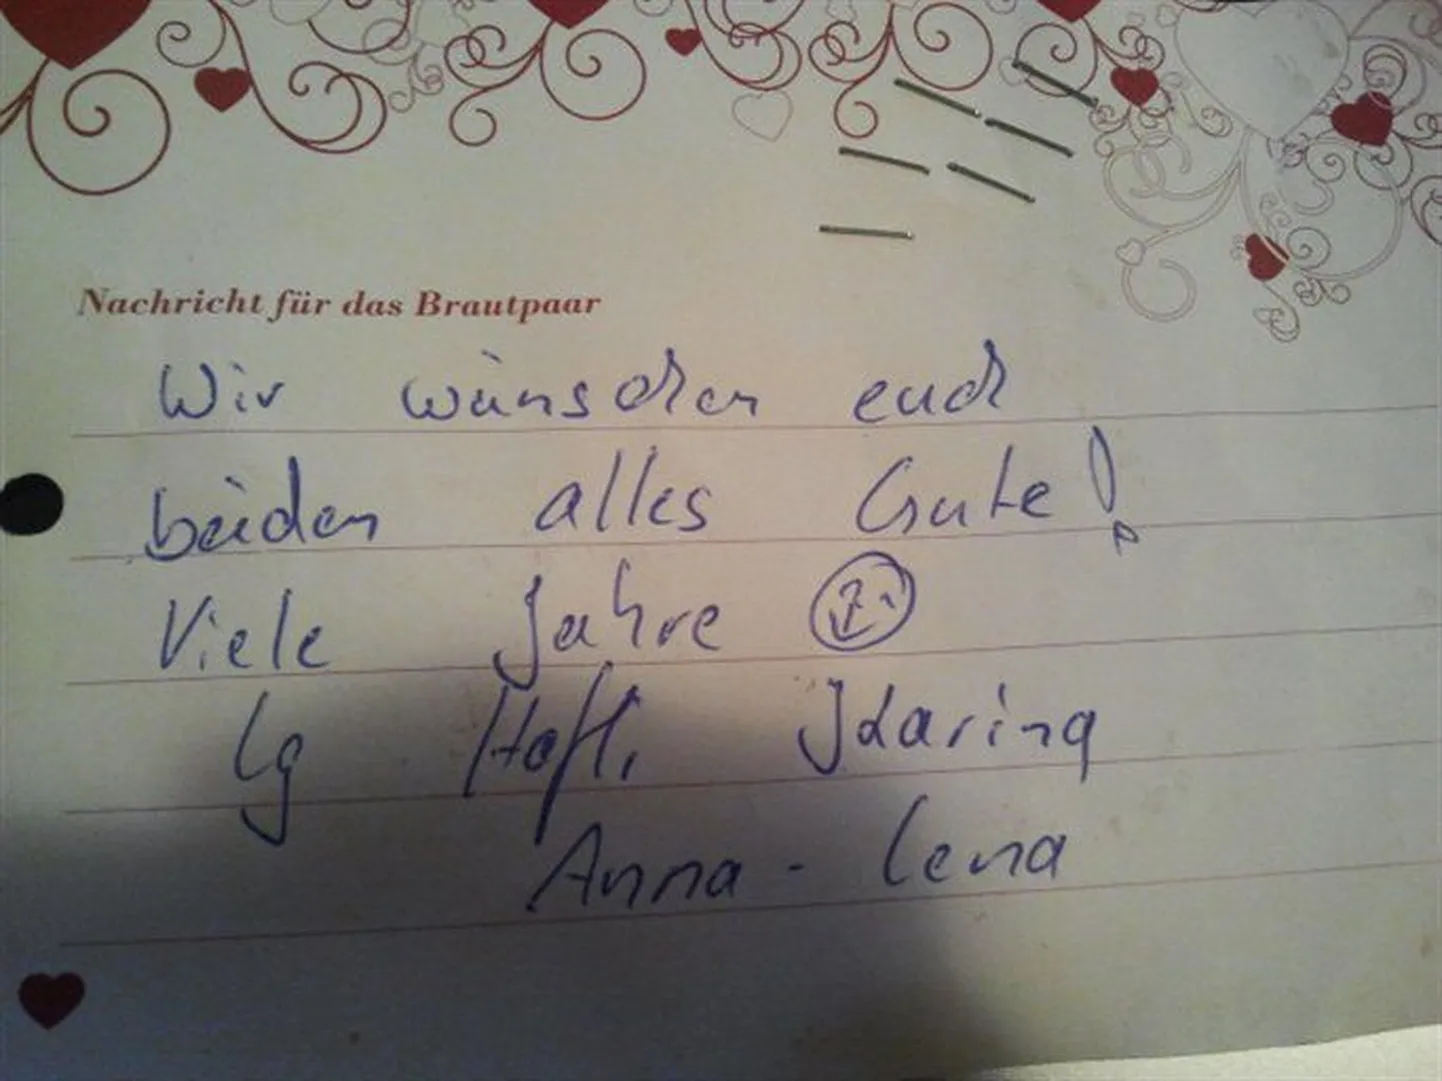 Nachricht für das Brautpaar
Wir wünschen euch
beiden alles Gute!
Viele Jahre
lg
Anna-Lena